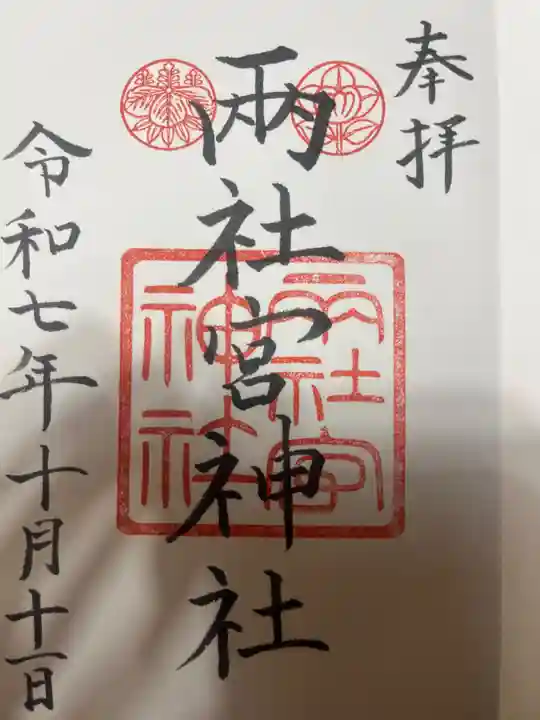 奉拝
両社宮神社
両社宮
神社
令和七年十月十一日